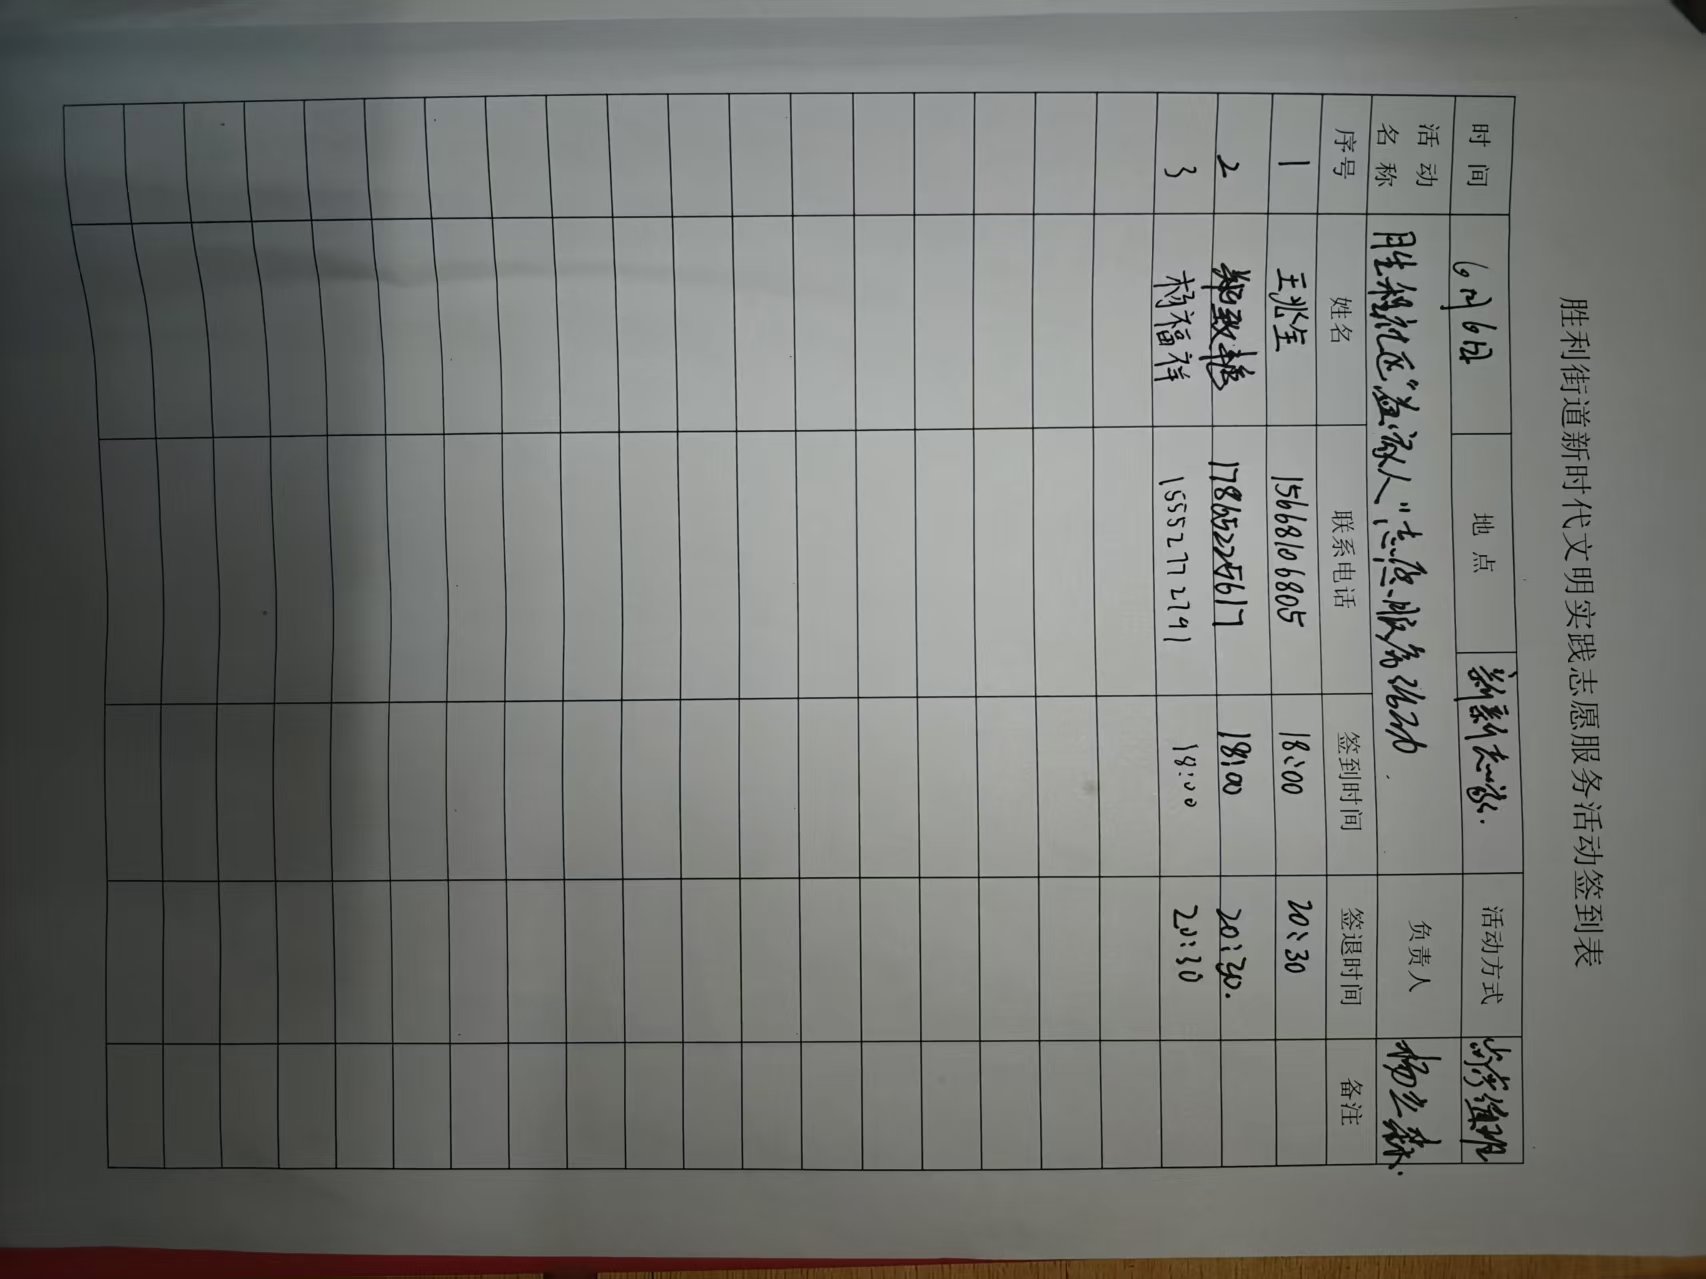 胜利街道新时代文明实践志愿服务活动签到表
时间 6月6日 地点 活动方式
活动名称 志愿服务活动 负责人
序号 姓名 联系电话 签到时间 签退时间 备注
1 王兆全 15668106805 18:00 20:30
2 17865225617 18:00 20:30.
3 杨福祥 15552772791 18:00 20:30